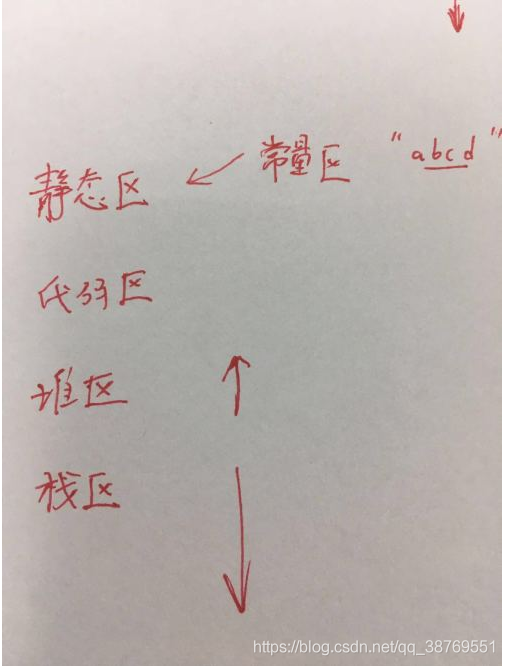 常量区 "abcd"
静态区
代码区
堆区
栈区
https://blog.csdn.net/qq_38769551